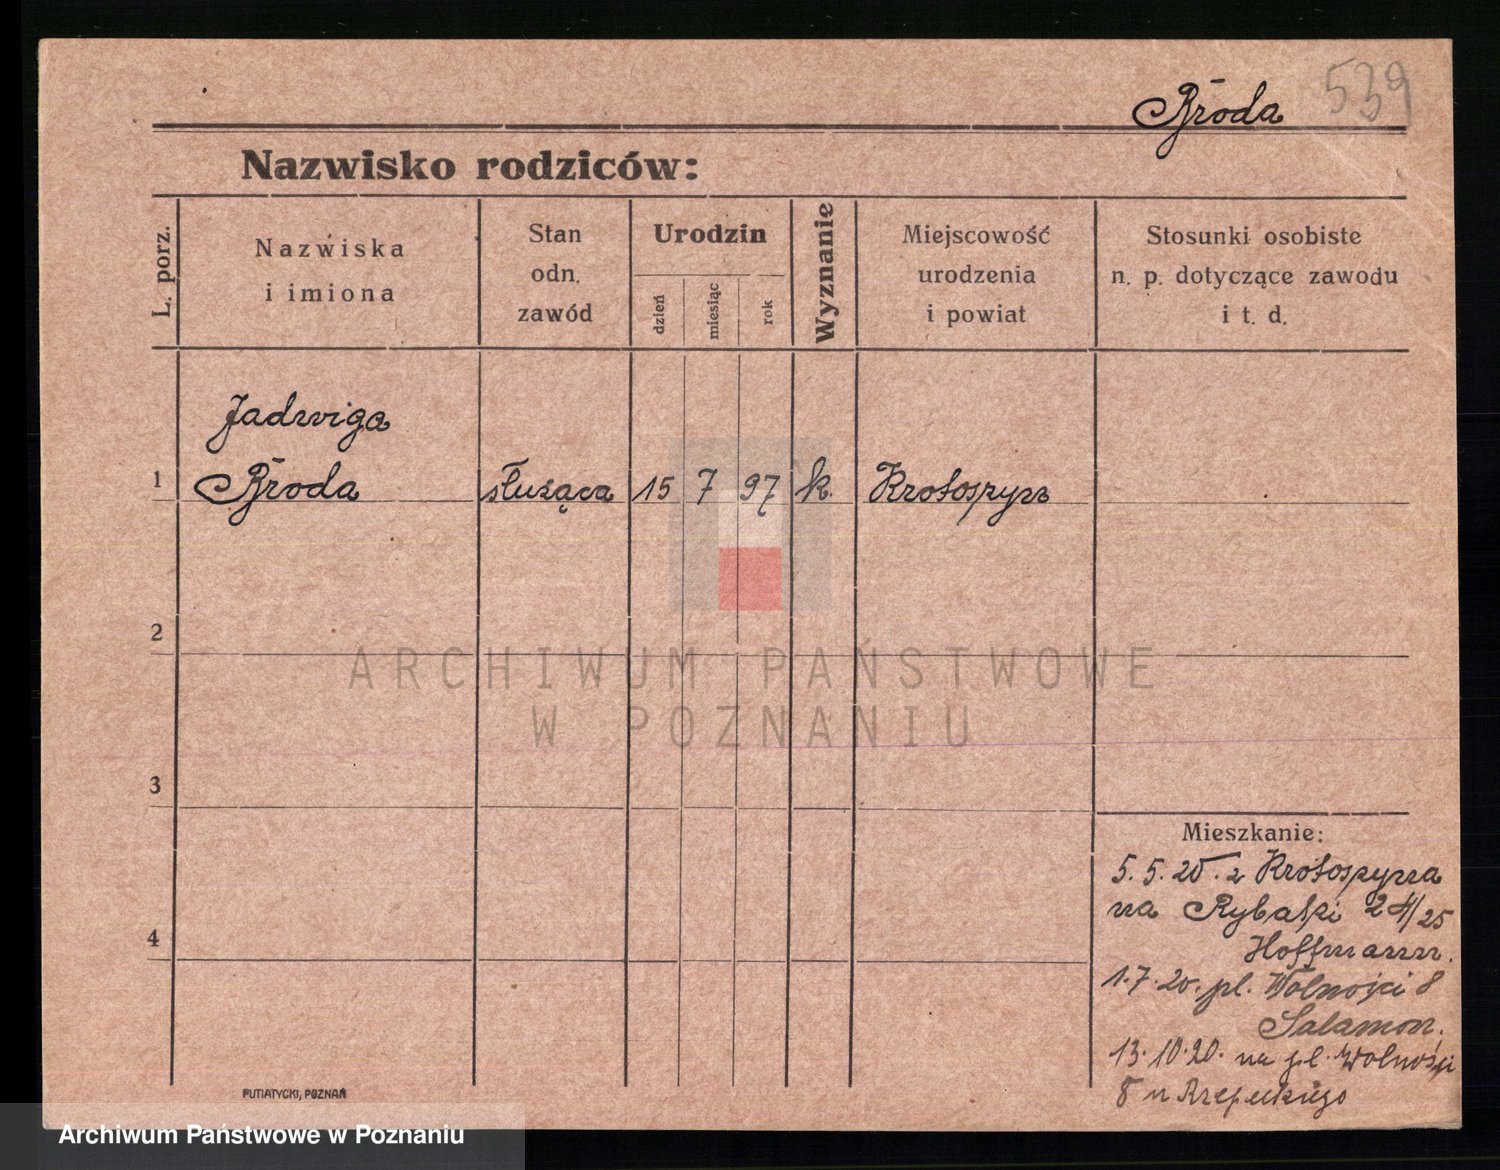 Broda 539
Nazwisko rodziców:
L. porz.
Nazwiska
i imiona
Stan
odn.
zawód
Urodzin
dzień
miesiąc
rok
Wyznanie
Miejscowość
urodzenia
i powiat
Stosunki osobiste
n. p. dotyczące zawodu
i t. d.
Jadwiga
1 Broda służąca 15 7 97 k. Krotoszyn
2
ARCHIWUM PAŃSTWOWE
W POZNANIU
3
4
Mieszkanie:
5.5.20. z Krotoszyna
na Rybaki 24/25
Hoffmann.
1.7.20. pl. Wolności 8
Salamon.
13.10.20. na pl. Wolności
8 u Rzepeckiego
PUTIATYCKI, POZNAŃ
Archiwum Państwowe w Poznaniu